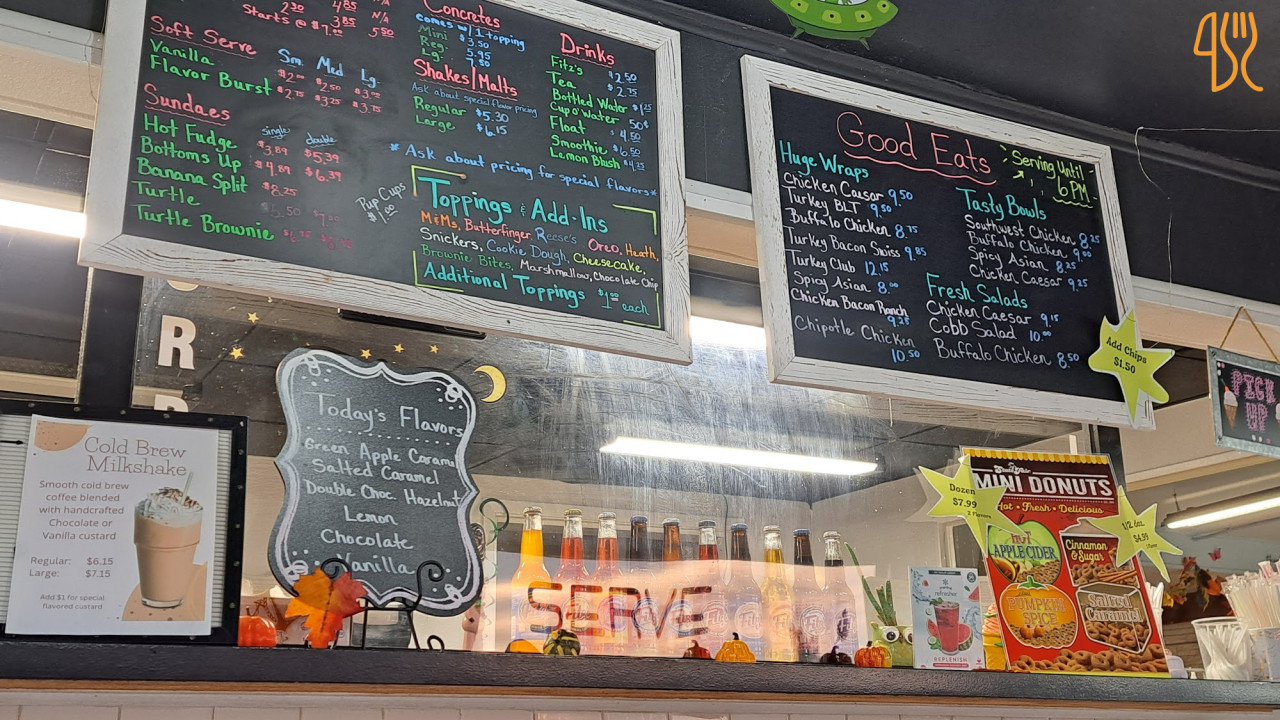 Concretes
comes w/ 1 topping
Mini $3.50
Reg. 5.95
Lg. 7.50
Starts @ $1.00 3.85 5.50
Soft Serve
Sm. Med Lg.
Vanilla $2.00 $2.50 $3.00
Flavor Burst $2.75 $3.25 $3.75
Sundaes
single double
Hot Fudge $3.89 $5.39
Bottoms Up $4.89 $6.39
Banana Split $8.25
Turtle $5.50
Turtle Brownie
Shakes/Malts
Ask about special flavor pricing
Regular $5.30
Large $6.15
Drinks
Fitz's $2.50
Tea $2.75
Bottled Water $1.25
Cup o' Water 50¢
Float $4.50
Smoothie $6.50
Lemon Blush $4.25
* Ask about pricing for special flavors *
Pup Cups
$1.00
Toppings & Add-Ins
M&Ms, Butterfinger, Reese's Oreo, Heath,
Snickers, Cookie Dough, Cheesecake,
Brownie Bites, Marshmallow, Chocolate Chip
Additional Toppings $1.00 each
Good Eats
Serving Until
6 PM
Huge Wraps
Chicken Caesar 9.50
Turkey BLT 9.50
Buffalo Chicken 8.75
Turkey Bacon Swiss 9.85
Turkey Club 12.15
Spicy Asian 8.00
Chicken Bacon Ranch
9.25
Chipotle Chicken
10.50
Tasty Bowls
Southwest Chicken 8.25
Buffalo Chicken 9.00
Spicy Asian 8.25
Chicken Caesar 9.25
Fresh Salads
Chicken Caesar 9.15
Cobb Salad 10.00
Buffalo Chicken 8.50
Add Chips
$1.50
PICK
UP
R
Today's Flavors
Green Apple Caramel
Salted Caramel
Double Choc. Hazelnut
Lemon
Chocolate
Vanilla
Cold Brew
Milkshake
Smooth cold brew
coffee blended
with handcrafted
Chocolate or
Vanilla custard
Regular: $6.15
Large: $7.15
Add $1 for special
flavored custard
SERVE
refresher
REPLENISH
MINI DONUTS
Hot • Fresh • Delicious
Dozen
$7.99
2 Flavors
1/2 doz.
$4.99
1 Flavor
HOT
APPLE CIDER
Cinnamon
& Sugar
PUMPKIN
SPICE
Salted
Caramel